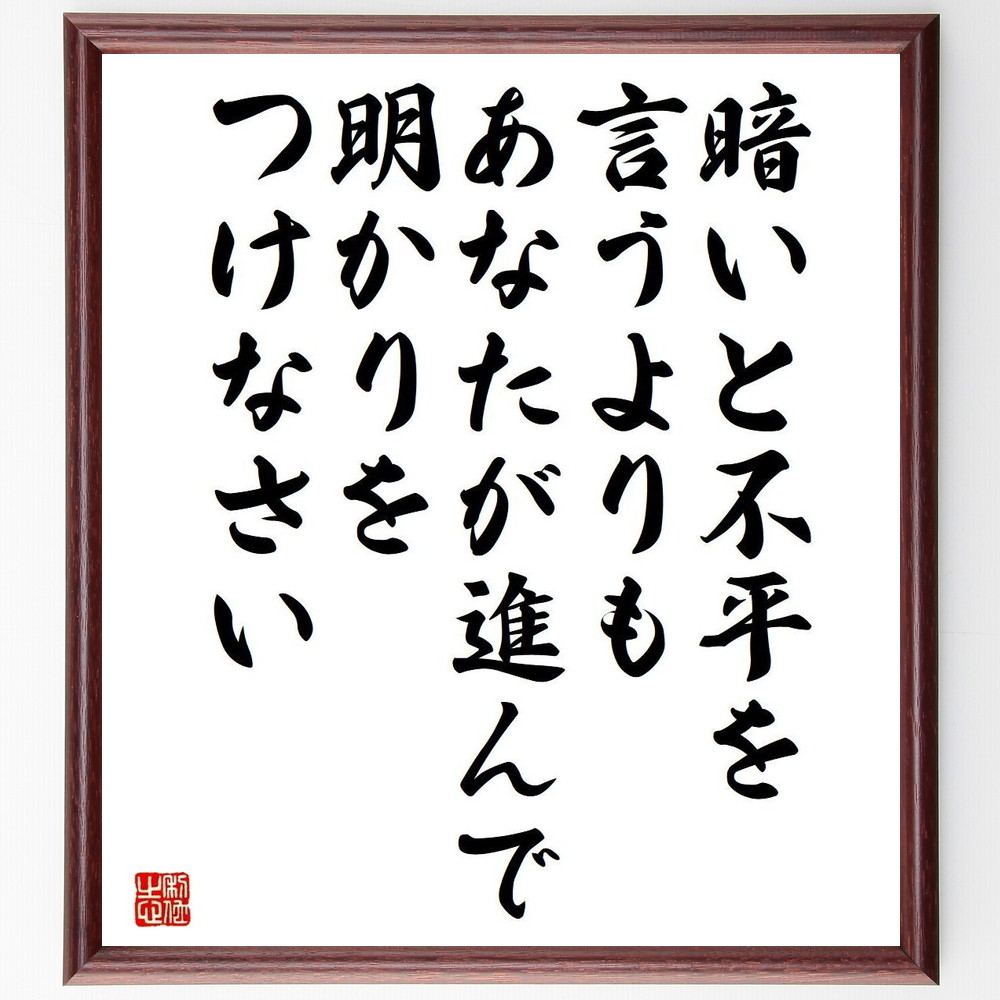 暗いと不平を
言うよりも
あなたが進んで
明かりを
つけなさい